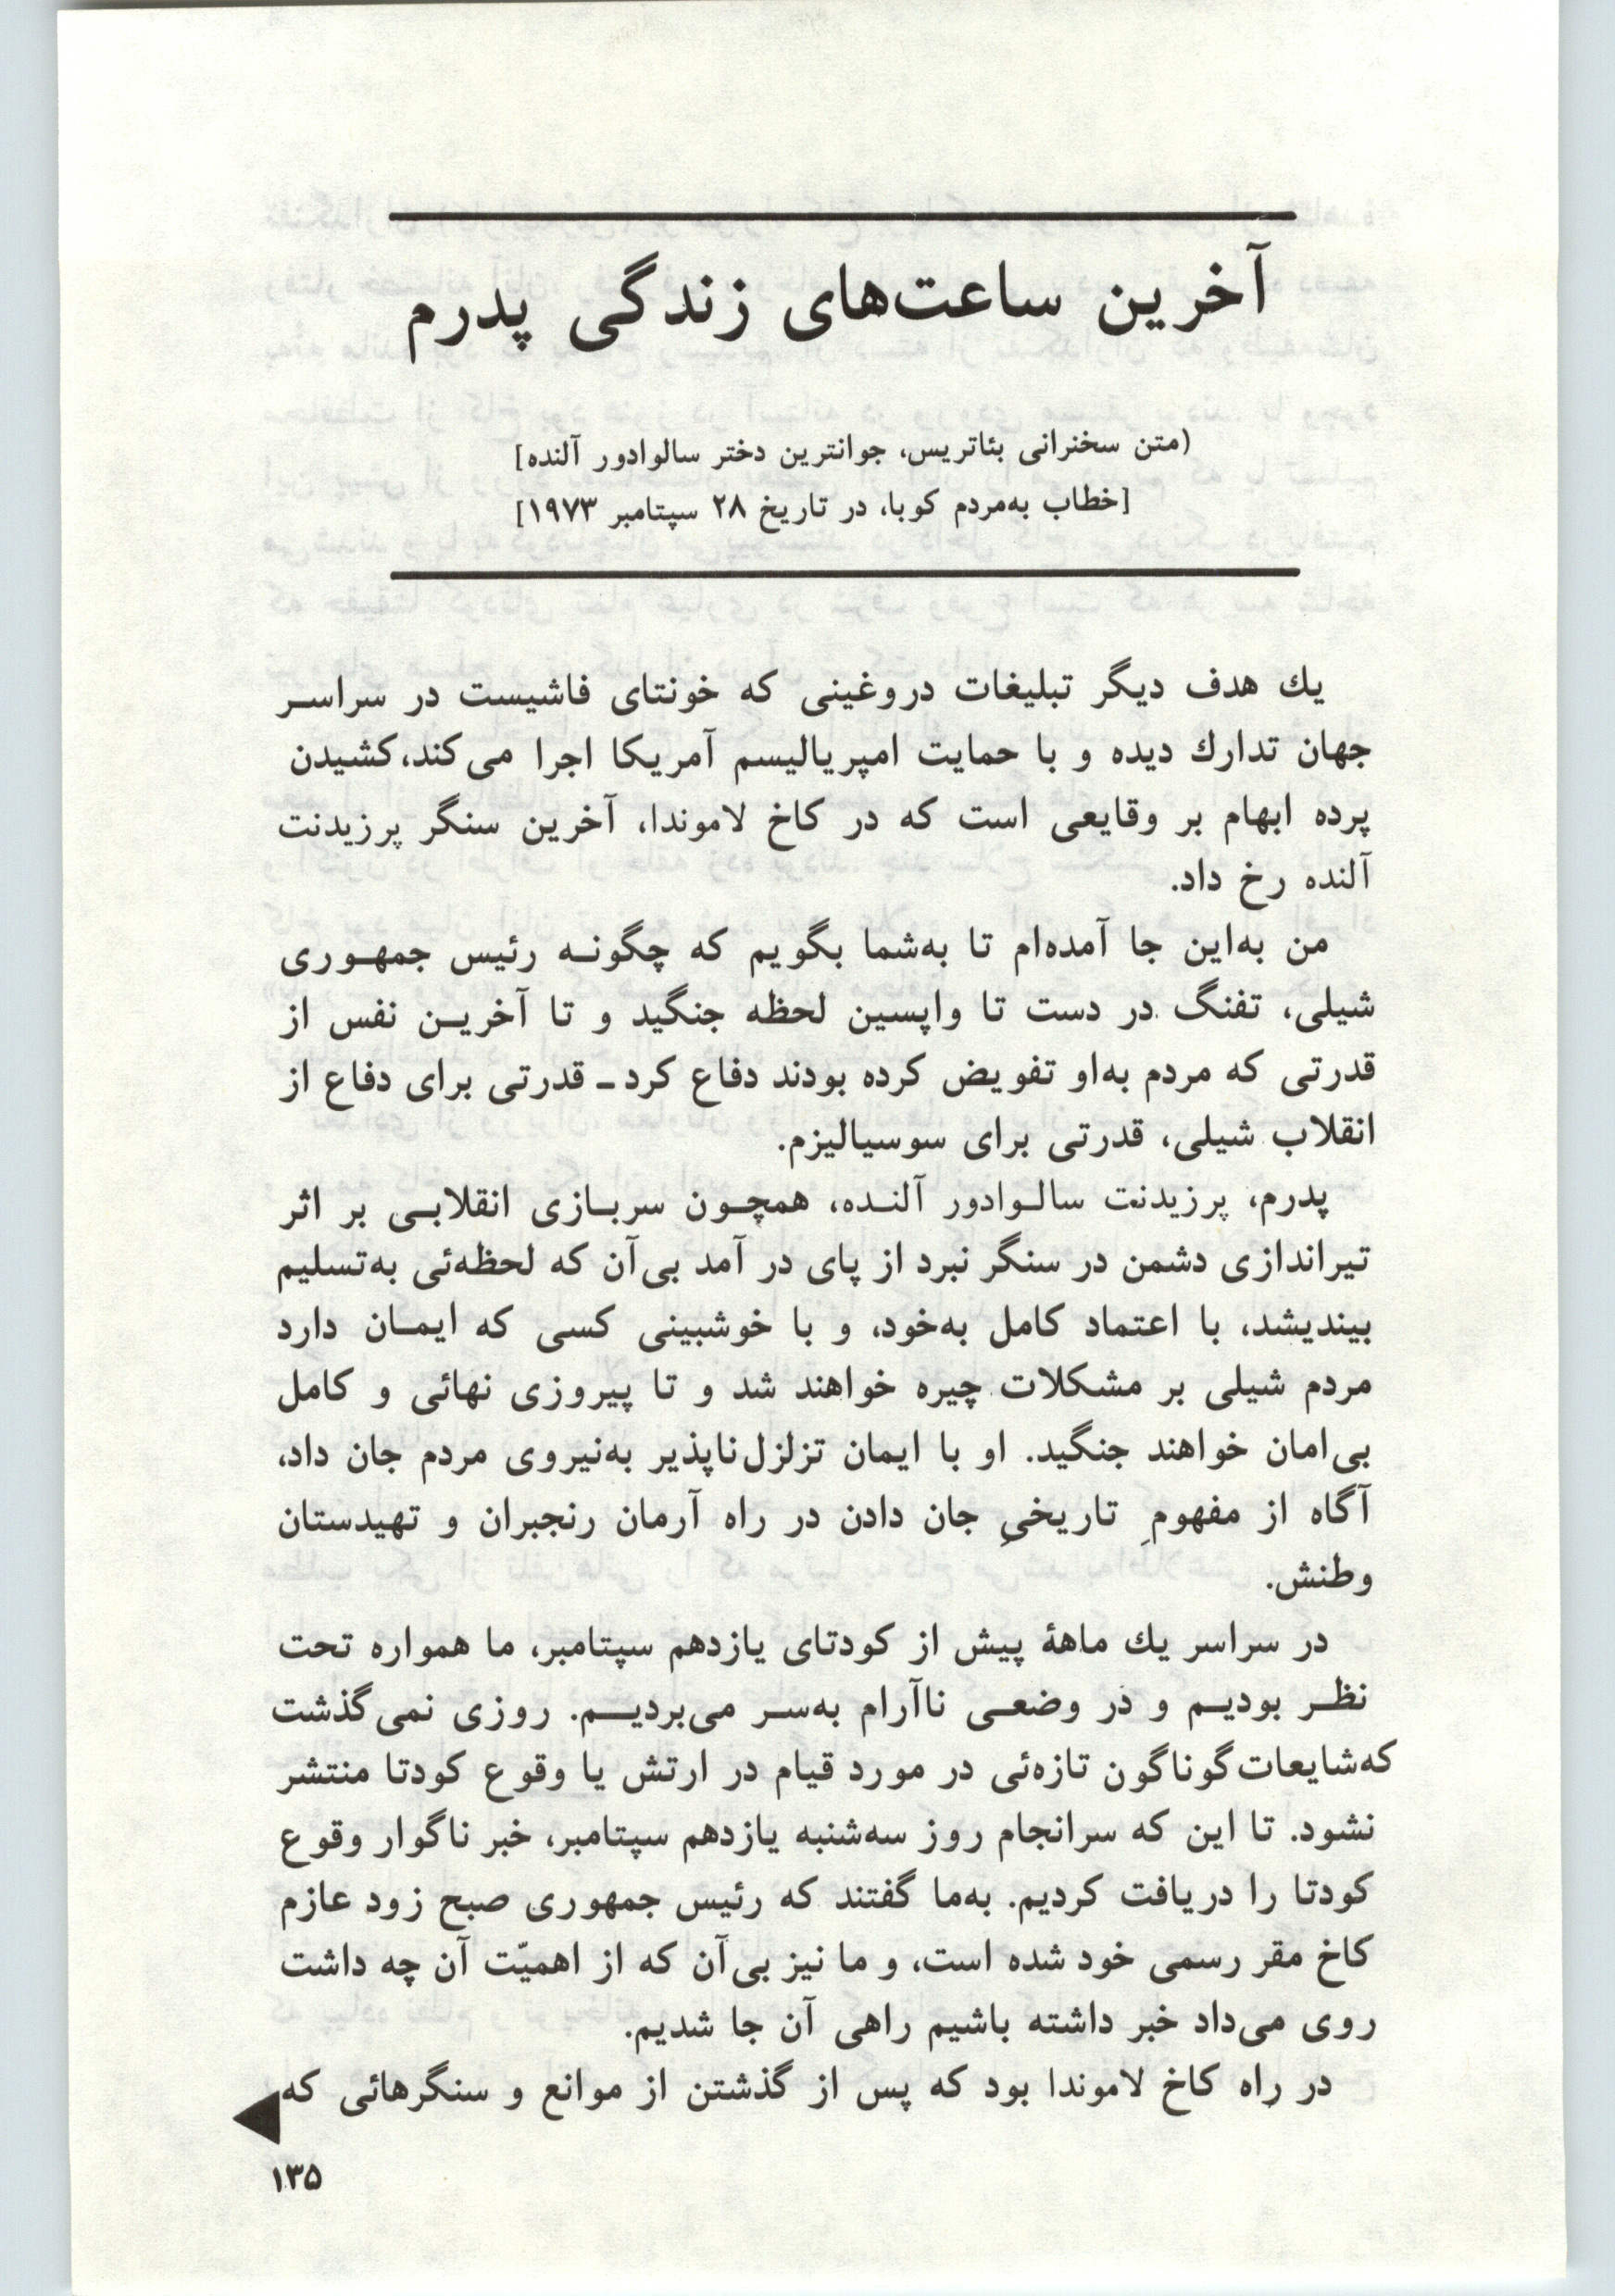 آخرین ساعت‌های زندگی پدرم
(متن سخنرانی بئاتریس، جوانترین دختر سالوادور آلنده]
[خطاب به‌مردم کوبا، در تاریخ ۲۸ سپتامبر ۱۹۷۳]
یك هدف دیگر تبلیغات دروغینی که خونتای فاشیست در سراسر
جهان تدارك دیده و با حمایت امپریالیسم آمریکا اجرا می‌کند، کشیدن
پرده ابهام بر وقایعی است که در کاخ لاموندا، آخرین سنگر پرزیدنت
آلنده رخ داد.
من به‌این جا آمده‌ام تا به‌شما بگویم که چگونه رئیس جمهوری
شیلی، تفنگ در دست تا واپسین لحظه جنگید و تا آخرین نفس از
قدرتی که مردم به‌او تفویض کرده بودند دفاع کرد ـ قدرتی برای دفاع از
انقلاب شیلی، قدرتی برای سوسیالیزم.
پدرم، پرزیدنت سالوادور آلنده، همچون سربازی انقلابی بر اثر
تیراندازی دشمن در سنگر نبرد از پای در آمد بی‌آن که لحظه‌ئی به‌تسلیم
بیندیشد، با اعتماد کامل به‌خود، و با خوشبینی کسی که ایمان دارد
مردم شیلی بر مشکلات چیره خواهند شد و تا پیروزی نهائی و کامل
بی‌امان خواهند جنگید. او با ایمان تزلزل‌ناپذیر به‌نیروی مردم جان داد،
آگاه از مفهومِ تاریخیِ جان دادن در راه آرمان رنجبران و تهیدستان
وطنش.
در سراسر یك ماههٔ پیش از کودتای یازدهم سپتامبر، ما همواره تحت
نظر بودیم و در وضعی ناآرام به‌سر می‌بردیم. روزی نمی‌گذشت
که‌شایعات گوناگون تازه‌ئی در مورد قیام در ارتش یا وقوع کودتا منتشر
نشود. تا این که سرانجام روز سه‌شنبه یازدهم سپتامبر، خبر ناگوار وقوع
کودتا را دریافت کردیم. به‌ما گفتند که رئیس جمهوری صبح زود عازم
کاخ مقر رسمی خود شده است، و ما نیز بی‌آن که از اهمیّت آن چه داشت
روی می‌داد خبر داشته باشیم راهی آن جا شدیم.
در راه کاخ لاموندا بود که پس از گذشتن از موانع و سنگرهائی که
۱۳۵